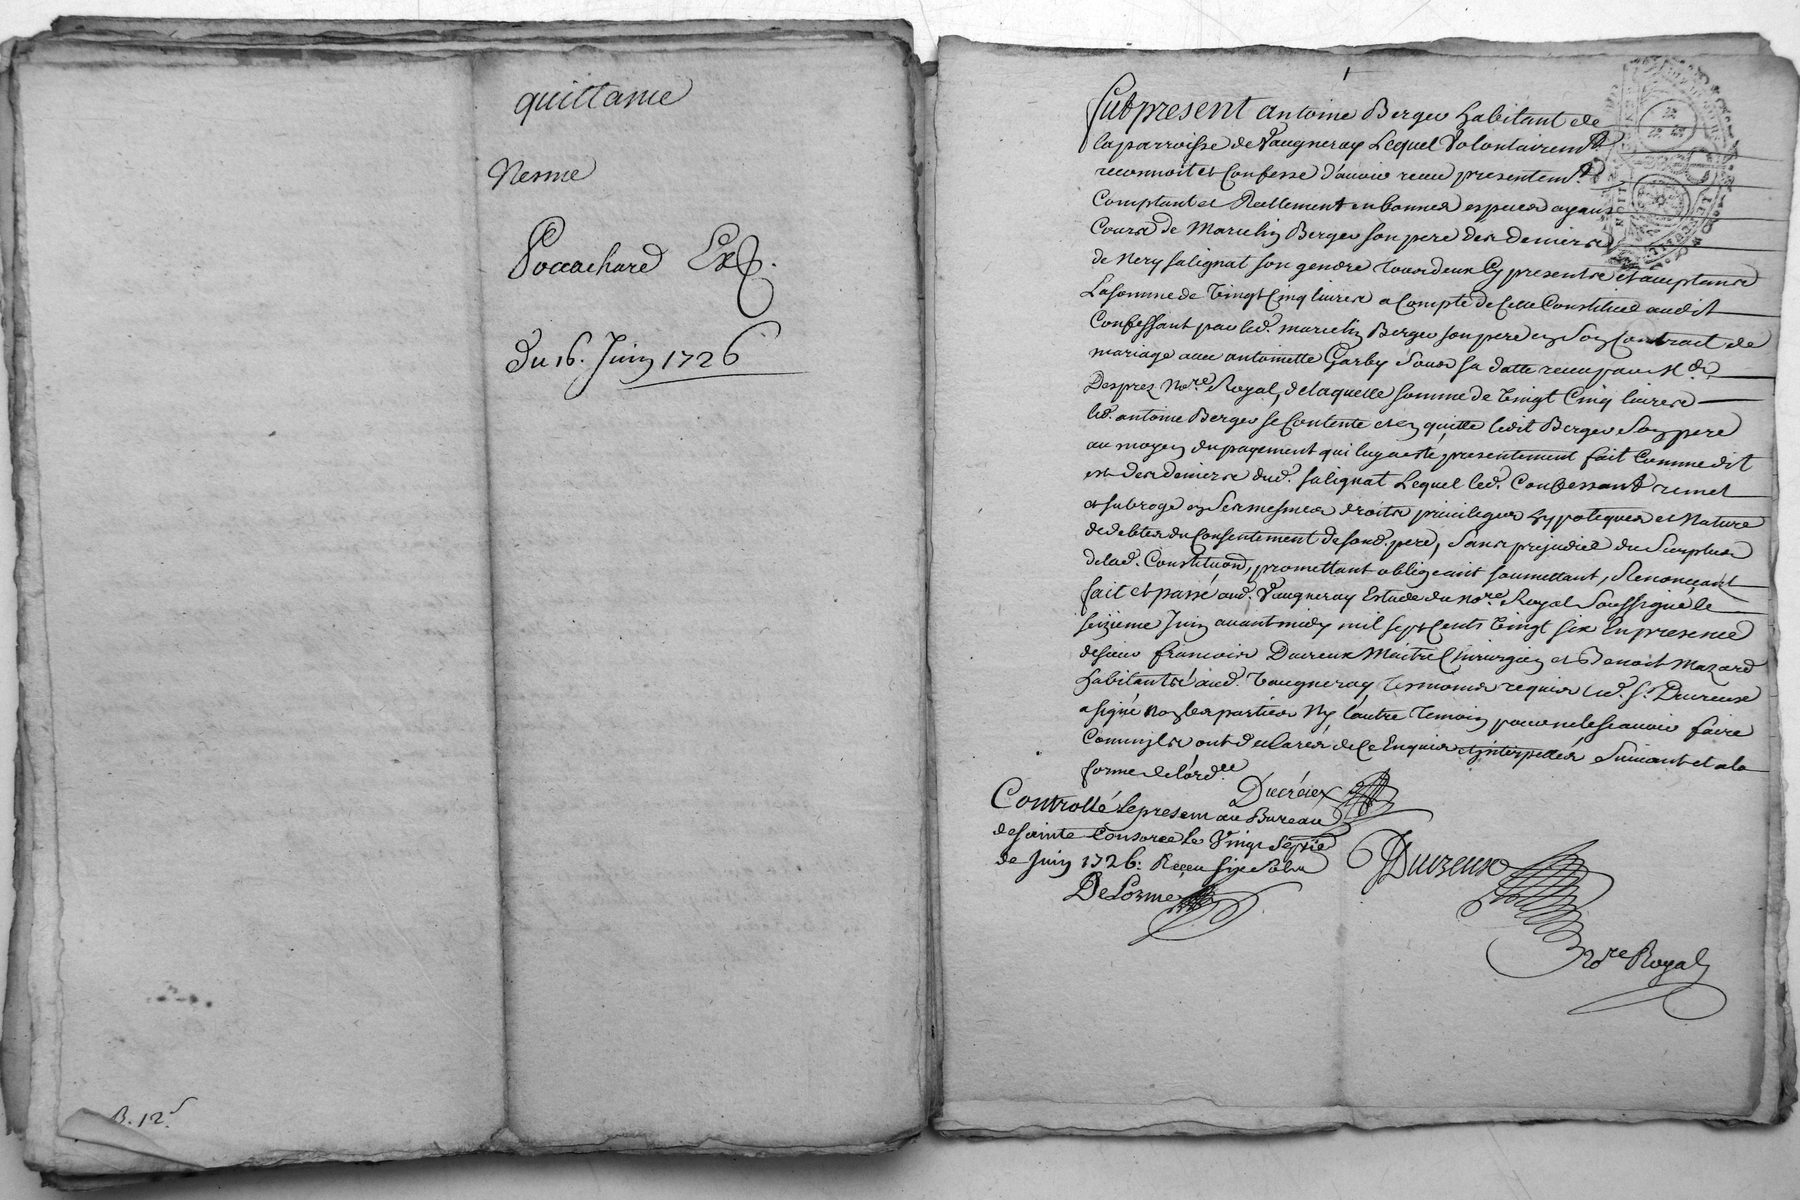 quittance
Nesme
Poccachard Ex
Du 16. Juin 1726
B. 12s
Fut present Antoine Berger habitant de
la parroisse de Vaugneray Lequel Volontairemt
reconnoit et Confesse d'avoir receu presentemt
Comptant et Reellement en bonnes especes ayans
Cours de Marcelin Berger son pere des deniers
de Nery salignat son gendre tous deux Cy presents et acceptants
La somme de Vingt Cinq livres a Compte de Celle Constituée audit
Confessant par led. marcelin Berger son pere en Son Contrait de
mariage avec antoinette Garby Sous sa datte receu par Me
Desprez Nore Royal, de laquelle somme de Vingt Cinq livres
led. antoine Berger se Contente et en quitte ledit Berger Son pere
au moyen du payement qui luy a esté presentement fait Comme dit
est des deniers dud. salignat Lequel led. Confessant remet
et subroge en Ses mesmes droits privileges hypoteques et Nature
de debtes du Consentement de sond. pere, Sans prejudice du Surplus
de lad. Constituon, promettant obligeant soumettant, Renonçeant
fait et passé aud. Vaugneray Estude du Nore Royal Soussigné le
seizieme Juin avant midy mil sept Cents Vingt six En presence
de sieur francois Ducreux Maitre Chirurgien et Benoit Mazard
habitants aud. Vaugneray Tesmoins requis led. sr. Ducreux
a signé non les parties Ny l'autre Temoin pour ne le scavoir faire
Comm'ils ont declarés de Ce Enquis et interpellés Suivant et a la
forme de l'ordce
Ducréux
Controllé le present au Bureau
de sainte Consorce le Vingt Septie
de Juin 1726: Receu six sols
DeLorme
Ducreux
Nore Royal